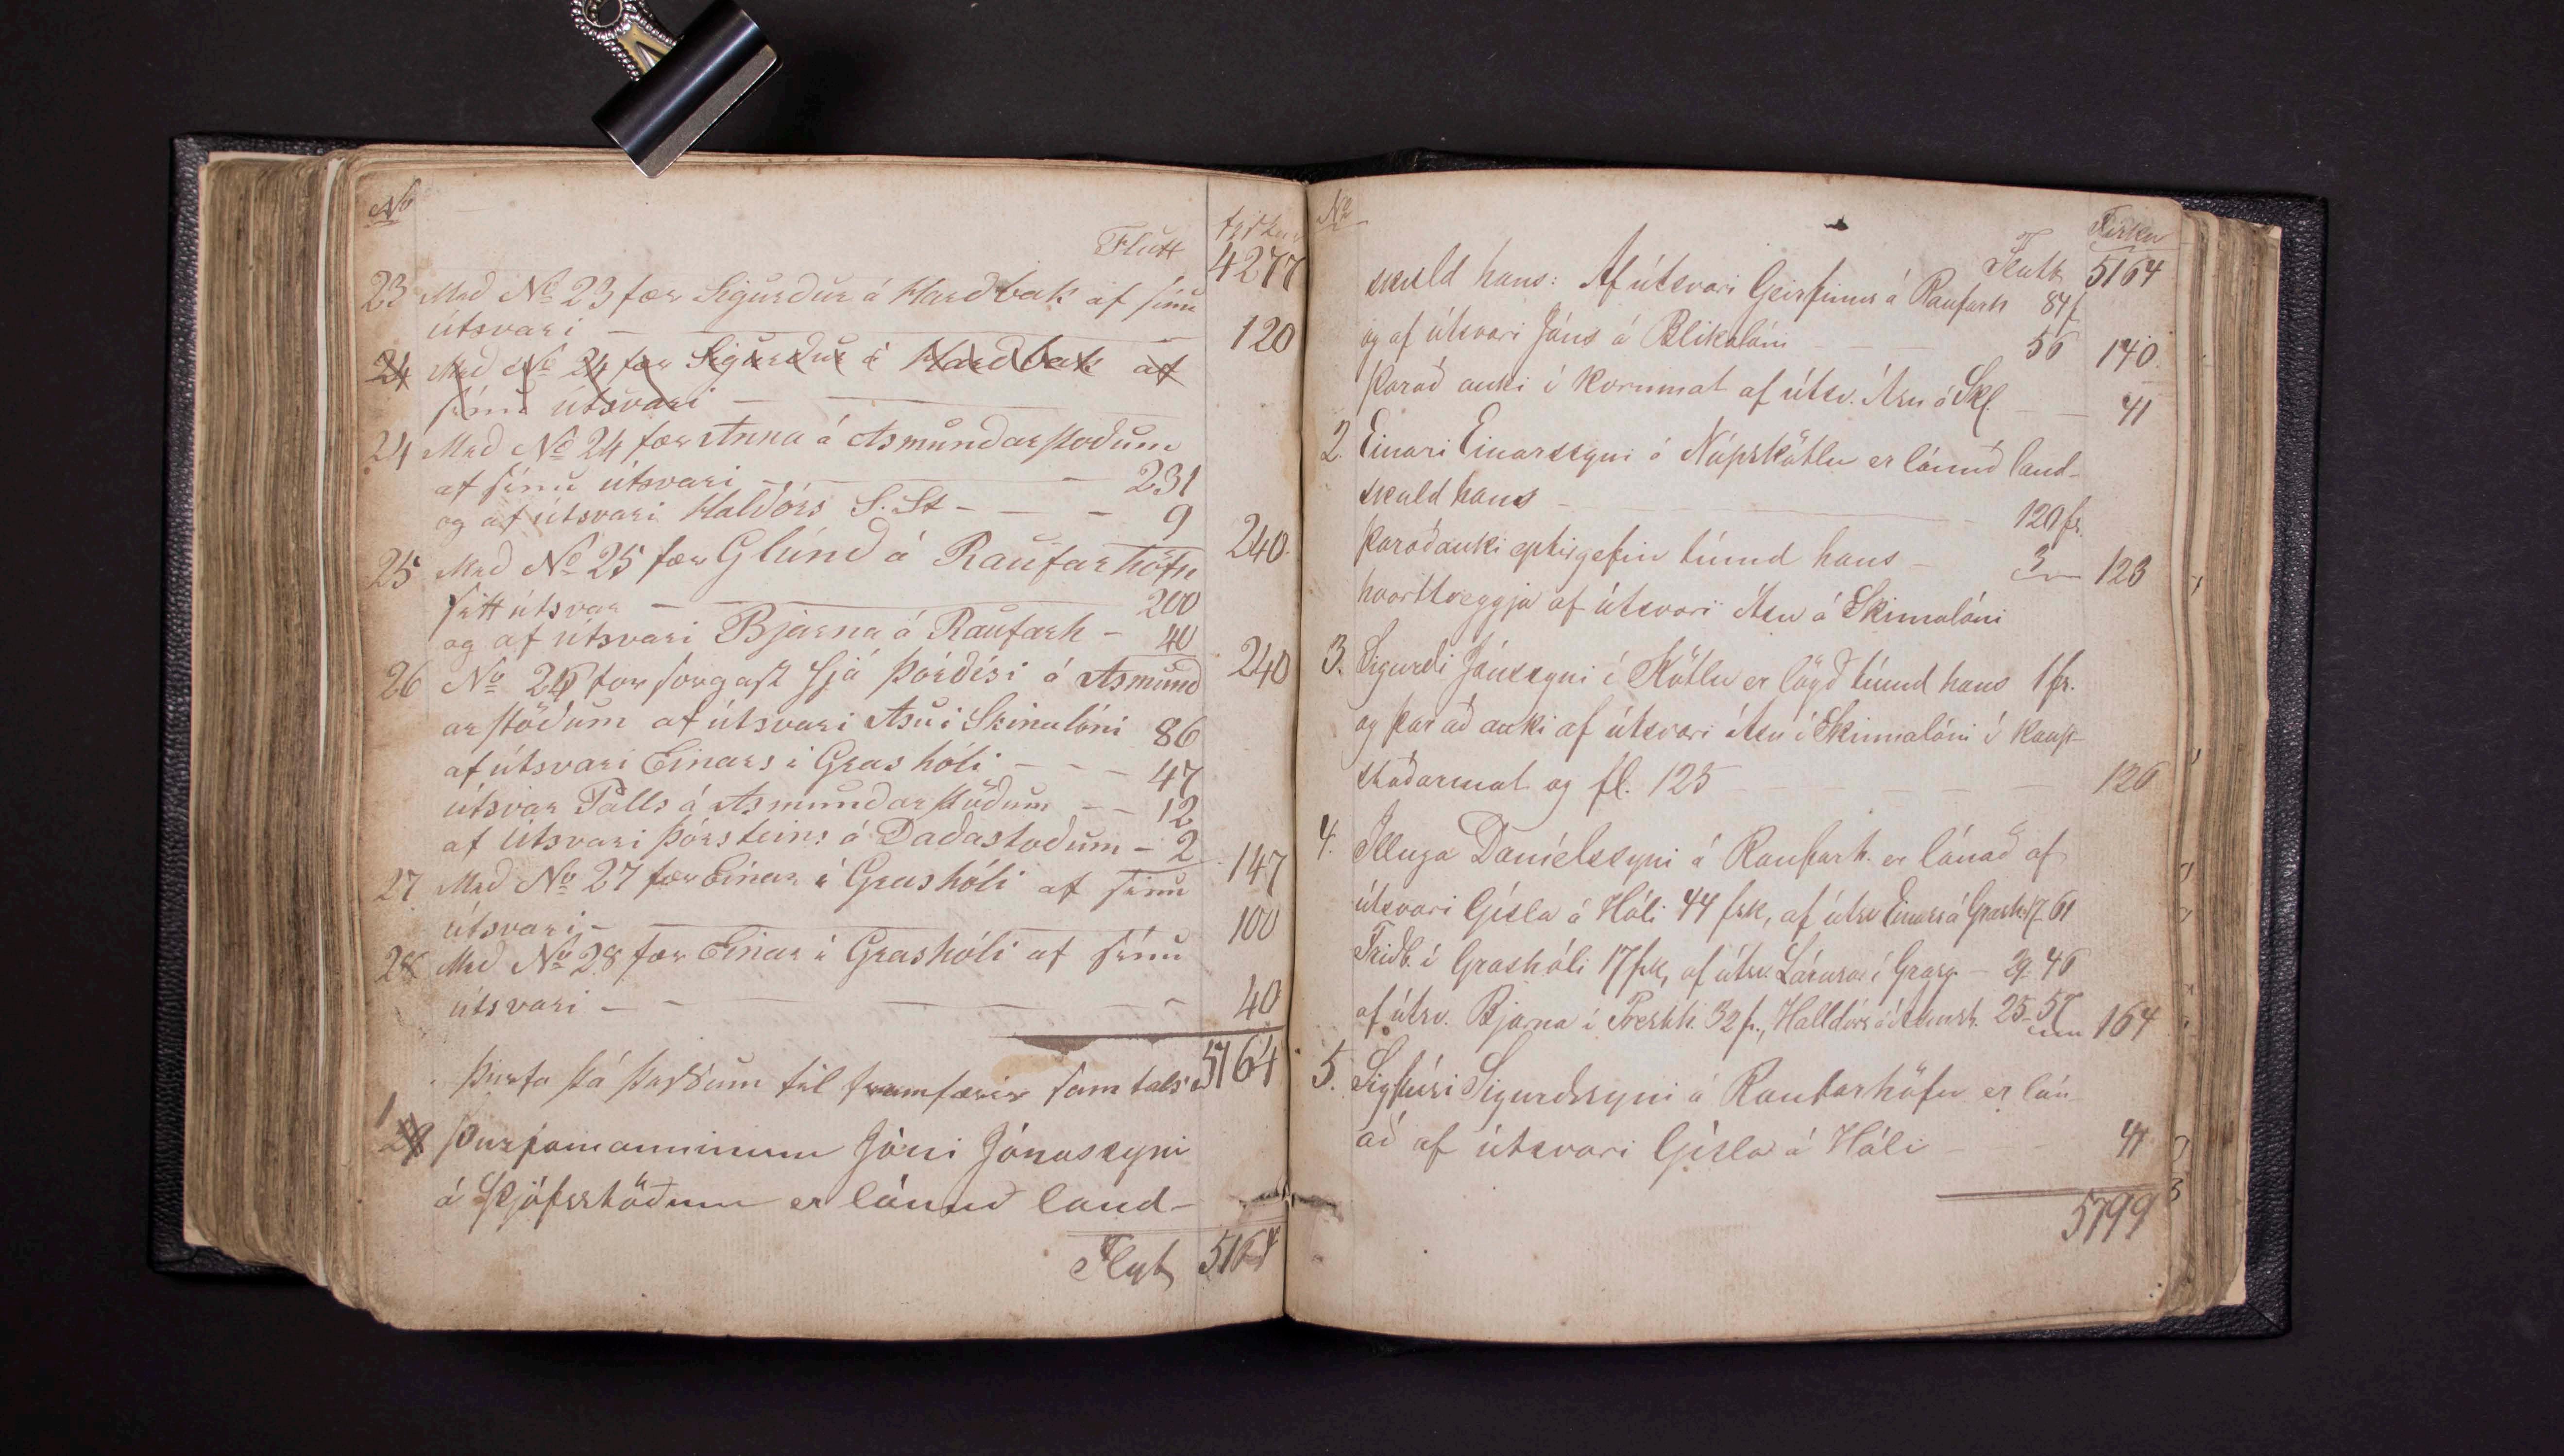 No
Fiskar
Flutt 4277
23 Með No 23 fær Sigurður á Harðbak af sínu
útsvari — 120
24 Með No 24 fær Sigurður á Harðbak af
sínu útsvari —
24 Með No 24 fær Anna á Asmundarstoðum
af sínu útsvari — 231
og af útsvari Haldórs S. St - - - 9 240
25 Með No 25 fær Glúnd á Raufarhöfn
sitt útsvar — 200
og af útsvari Bjarna á Raufarh - 40 240
26 No 26 forsorgast hjá Þórdísi á Asmund
arstöðum af útsvari Asu í Skinalóni 86
af útsvari Einars í Grashóli - - - 47
útsvar Páls á Asmundarstöðum - - 12
af útsvari Þórsteins á Daðastoðum - 2 147
27 Með No 27 fær Einar í Grashóli af sínu
útsvari - 100
28 Með No 28 fær Einar í Grashóli af sínu
útsvari - 40
Þurfa þá þessum til framfæris samtals 5164
1
29 Þurfamanninum Jóni Jónassyni
á Þjófsstöðum er lánuð land-
Flyt 5164
No
Fiskar
Flutt 5164
skuld hans: Af útsvari Geirfinns á Raufarh 84 f
og af útsvari Jóns á Blikalóni — 56 140
Þarað auki í kornmat af útsv. Ásu á Skl. — 41
2. Einari Einarssyni á Núpskötlu er lánuð land-
skuld hans — 120 fr.
Þaraðauki eptirgefin tíund hans — 3 123
hvorttveggja af útsvari Ásu á Skinnalóni
3. Sigurði Jónssyni í Kötlu er lögð tíund hans 1 fr.
og þar að auki af útsvari Ásu í Skinnalóni í kaup-
staðarmat og fl. 125 — 126
4. Illuga Daníelssyni á Raufarh. er lánað af
útsvari Gísla á Hóli 44 fsk, af útsv Einars á Grash. 17. 61
Friðb. í Grashóli 17 fsk, af útsv. Lárusar í Grasg. - 29. 46
af útsv. Bjarna í Preshh. 32 f., Halldórs á Ásmst. 25 - 57 164
5. Sigfúsi Sigurðssyni á Raufarhöfn er lán-
að af útsvari Gísla á Hóli — 41
5799